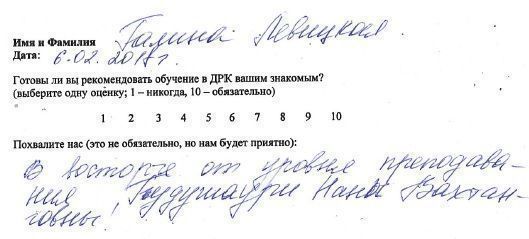 Имя и Фамилия Галина Левицкая
Дата: 6.02.2017г.
Готовы ли вы рекомендовать обучение в ДРК вашим знакомым?
(выберите одну оценку; 1 – никогда, 10 – обязательно)
1 2 3 4 5 6 7 8 9 10
Похвалите нас (это не обязательно, но нам будет приятно):
В восторге от уровня преподава-
ния, Гудушаури Наны Вахтан-
говны!